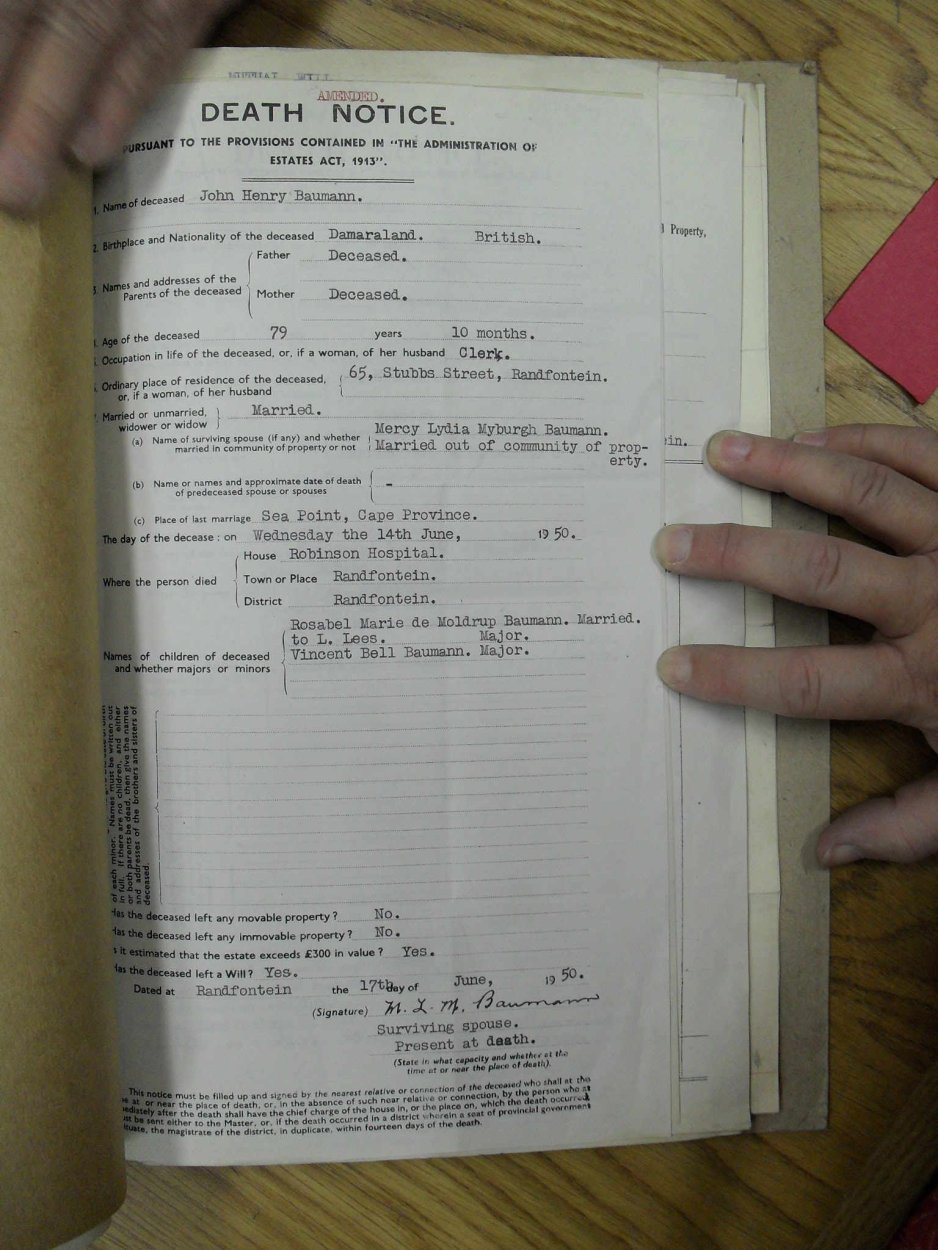 MUTUAL WILL
AMENDED.
DEATH NOTICE.
PURSUANT TO THE PROVISIONS CONTAINED IN "THE ADMINISTRATION OF
ESTATES ACT, 1913".
1. Name of deceased John Henry Baumann.
2. Birthplace and Nationality of the deceased Damaraland. British.
3. Names and addresses of the Parents of the deceased
Father Deceased.
Mother Deceased.
Age of the deceased 79 years 10 months.
Occupation in life of the deceased, or, if a woman, of her husband Clerk.
Ordinary place of residence of the deceased, 65, Stubbs Street, Randfontein.
or, if a woman, of her husband
Married or unmarried, Married.
widower or widow
(a) Name of surviving spouse (if any) and whether Mercy Lydia Myburgh Baumann.
married in community of property or not Married out of community of prop-
erty.
(b) Name or names and approximate date of death -
of predeceased spouse or spouses
(c) Place of last marriage Sea Point, Cape Province.
The day of the decease : on Wednesday the 14th June, 19 50.
Where the person died
House Robinson Hospital.
Town or Place Randfontein.
District Randfontein.
Rosabel Marie de Moldrup Baumann. Married.
to L. Lees. Major.
Names of children of deceased Vincent Bell Baumann. Major.
and whether majors or minors
of each minor. Names must be written out
in full. If there are no children, and either
or both parents be dead, then give the names
and addresses of the brothers and sisters of
deceased.
Has the deceased left any movable property? No.
Has the deceased left any immovable property? No.
is it estimated that the estate exceeds £300 in value? Yes.
Has the deceased left a Will? Yes.
Dated at Randfontein the 17th day of June, 19 50.
(Signature) M. L. M. Baumann
Surviving spouse.
Present at death.
(State in what capacity and whether at the
time at or near the place of death).
This notice must be filled up and signed by the nearest relative or connection of the deceased who shall at the
at or near the place of death, or, in the absence of such near relative or connection, by the person who at
immediately after the death shall have the chief charge of the house in, or the place on, which the death occurred,
must be sent either to the Master, or, if the death occurred in a district wherein a seat of provincial government
situate, the magistrate of the district, in duplicate, within fourteen days of the death.
Property,
ein.